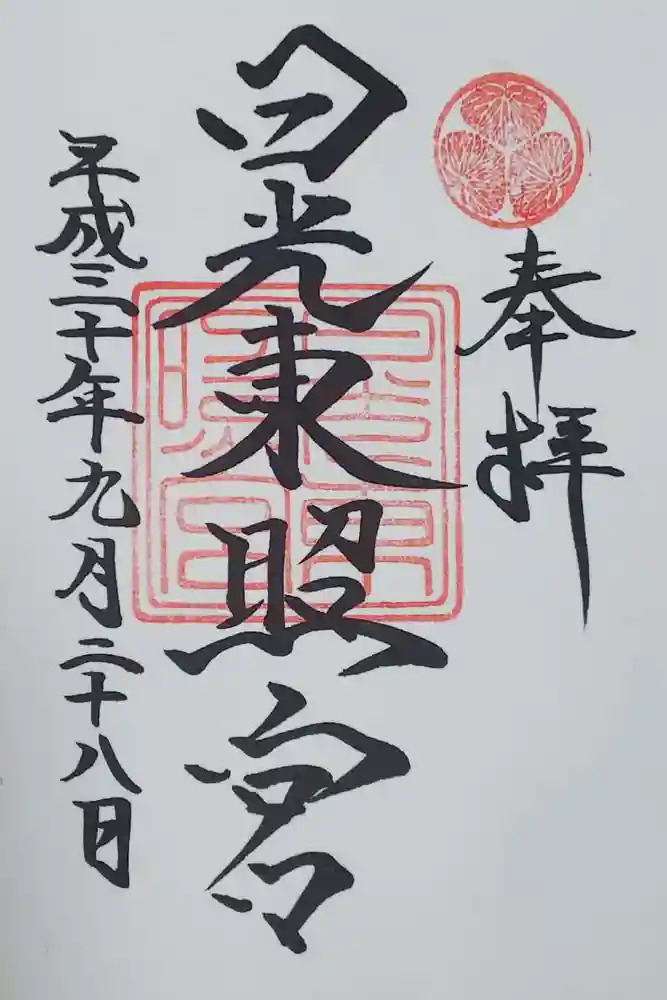 奉拝
日光東照宮
平成三十年九月二十八日